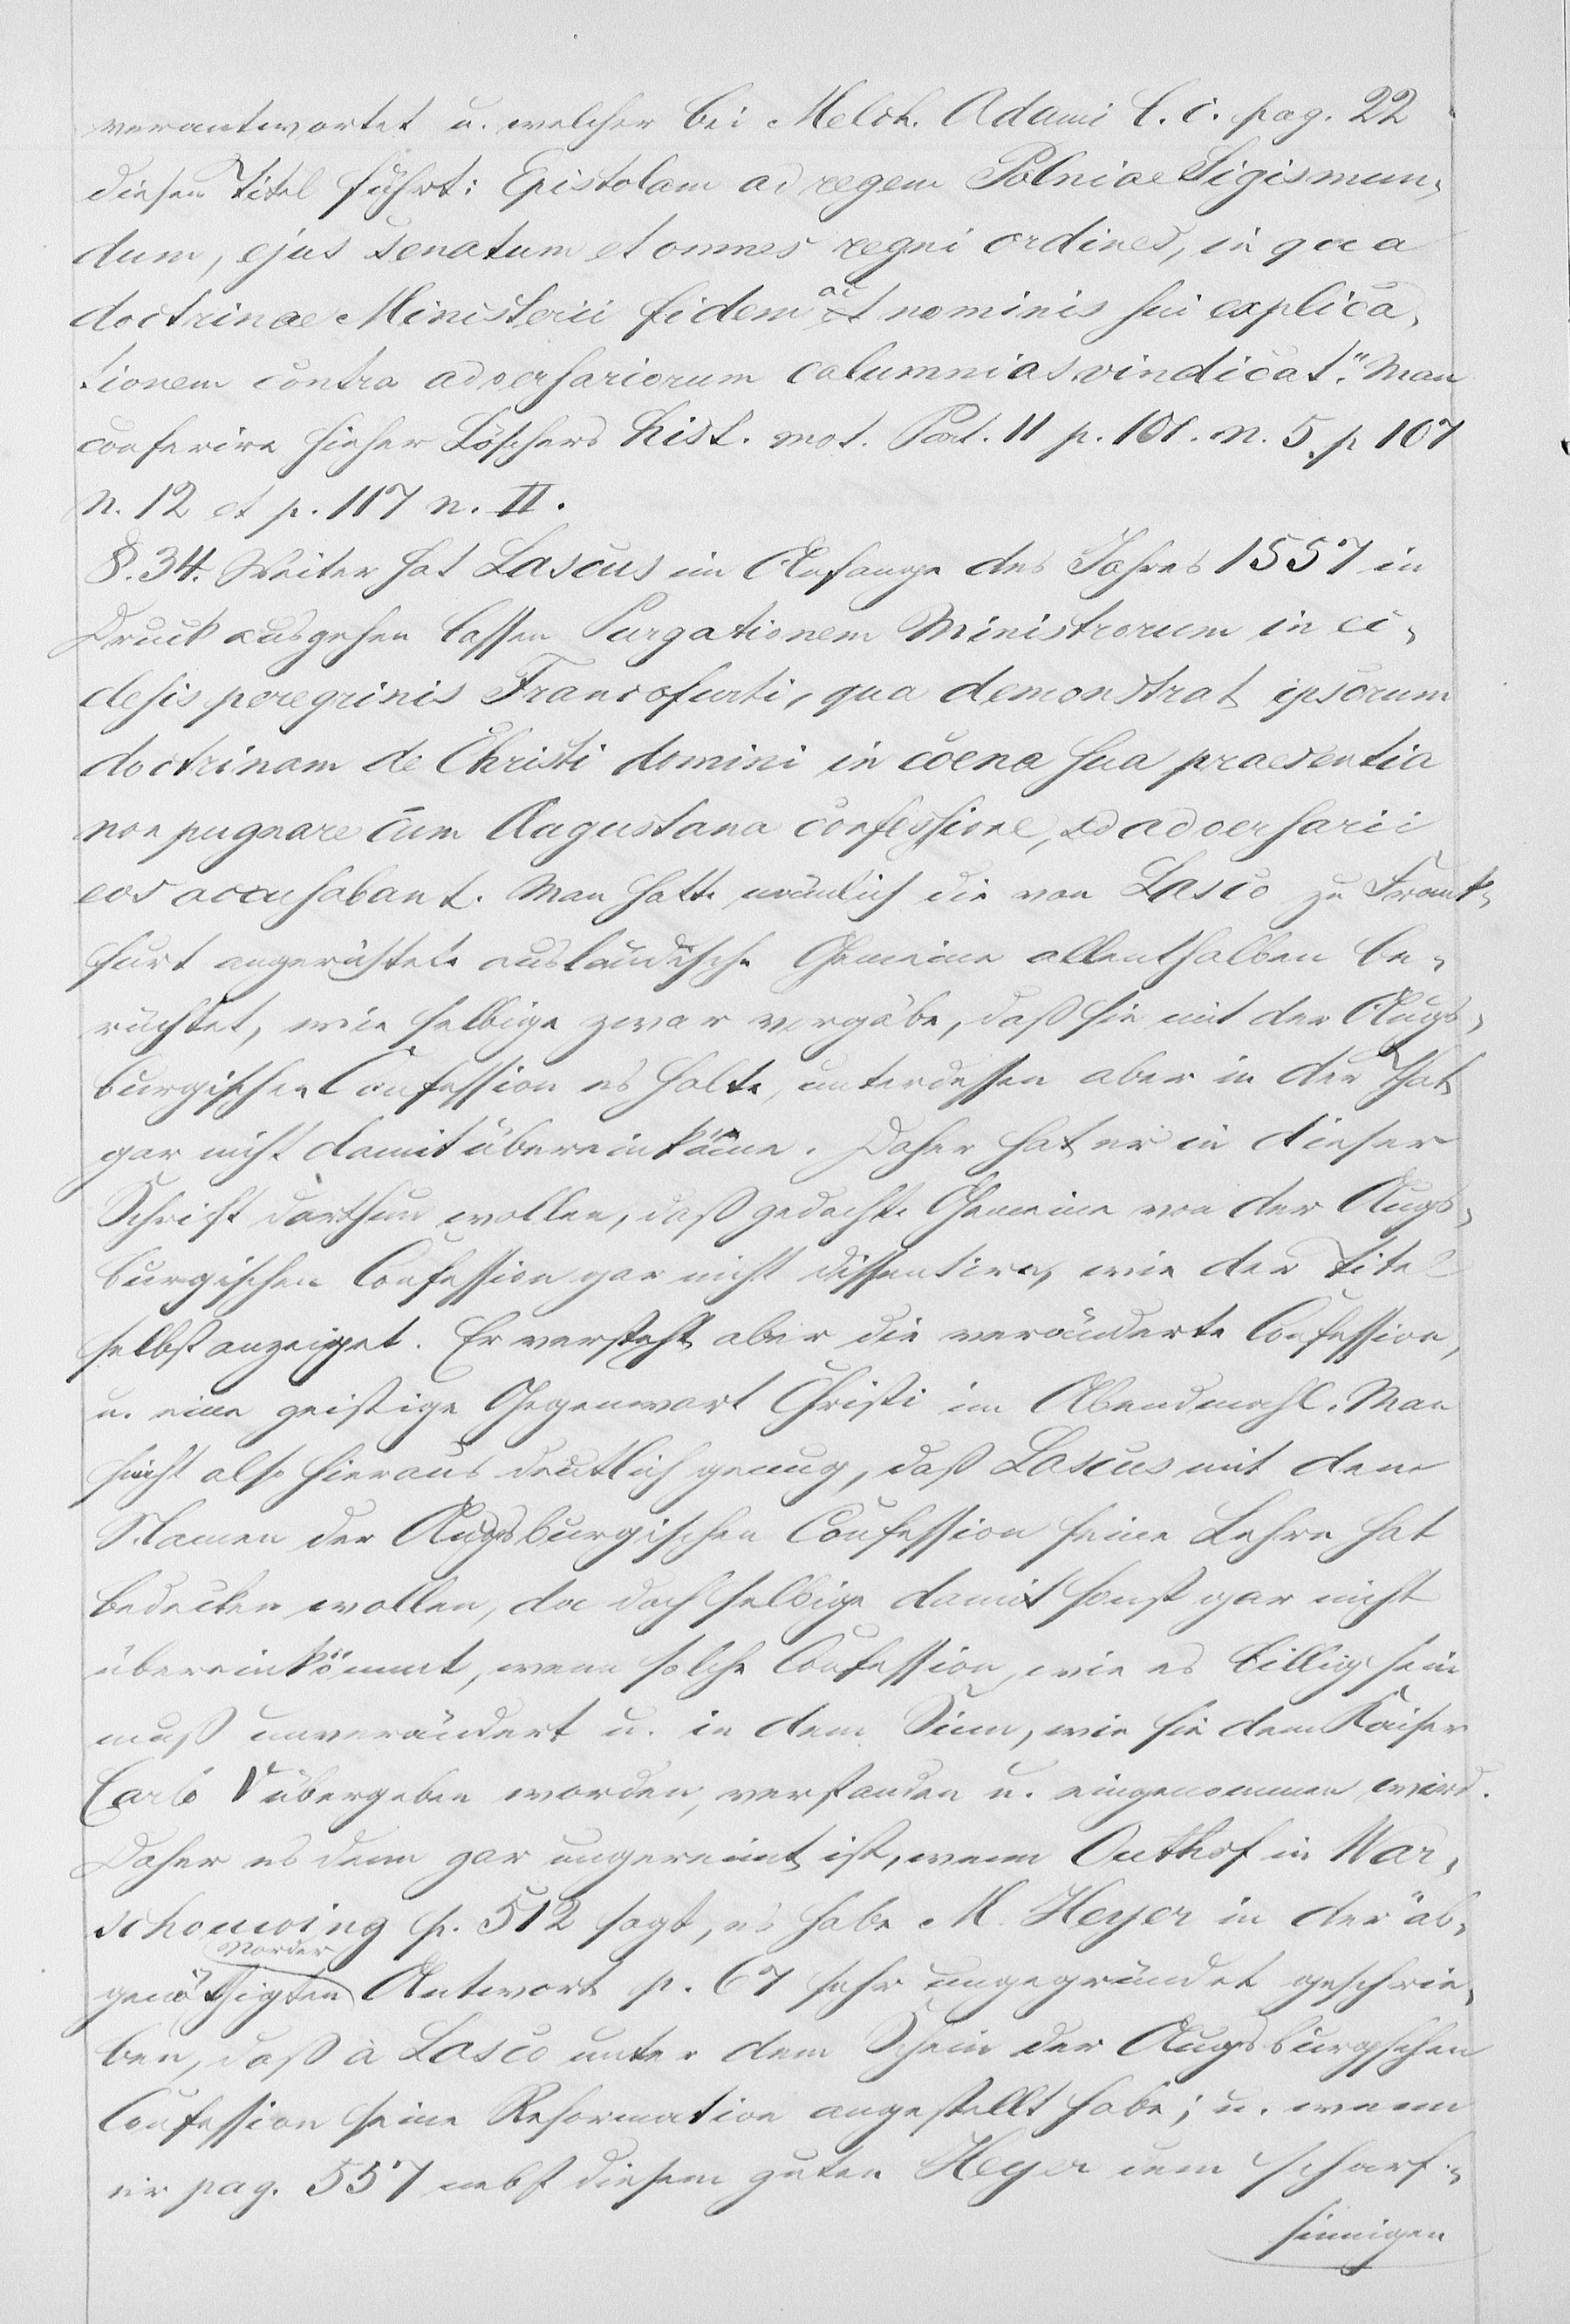 verantwortet u. welcher bei Melch. Adami l. c. pag. 22
diesen Titel führt: Epistolam ad regem Polniae Sigismun-
dum, ejus senatum et omnes regni ordines, in qua
doctrinae Ministerii fidem ac et nominis sui explica-
tionem contra adversariorum calumnias vindicat." Man
conferire hieher Löschers hist. mot. Part. II p. 101. n. 5. p 107
n. 12 et p. 117 n. II.
§. 34. Weiter hat Lascus im Anfange des Jahres 1557 in
Druck ausgehen lassen Purgationem Ministrorum in ec-
clesis peregrinis Francofurti, qua demonstrat ipsorum
doctrinam de Christi domini in coena sua praesentia
non pugnare cum Augustana confessione, ut adversarii
eos accusabant. Man hatte nämlich die von Lasco zu Frank-
furt angerichtete ausländische Gemeine allenthalben be-
rüchtet, wie selbige zwar vorgäbe, daß sie mit der Augs-
burgischen Confession es halte, unterdessen aber in der That
gar nicht damit übereinkäme. Daher hat er in dieser
Schrift darthun wollen, daß gedachte Gemeine von der Augs-
burgischen Confession gar nicht dissentire, wie der Titel
selbst anzeiget. Er versteht aber die veränderte Confession,
u. eine geistige Gegenwart Christi im Abendmahl. Man
sieht also hieraus deutlich genug, daß Lascus mit dem
Namen der Augsburgischen Confession seine Lehre hat
bedecken wollen, da doch selbige damit sonst gar nicht
übereinkömmt, wenn solche Confession, wie es billig sein
muß unverändert u. in dem Sinn, wie sie dem Kaiser
Carlo V übergeben worden, verstanden u. eingenommen wird.
Daher es denn gar ungereimt ist, wenn Outhof in War-
schouwing p. 512 sagt, es habe M. Heyer in der ab-
Norder
genöthigten Antwort p. 67 sehr ungegründet geschrie-
ben, daß à Lasco unter dem Schein der Augsburgschen
Confession seine Reformation angestellt habe; u. wenn
er pag. 557 nebst diesem guten Heyer dem scharf-
sinnigen